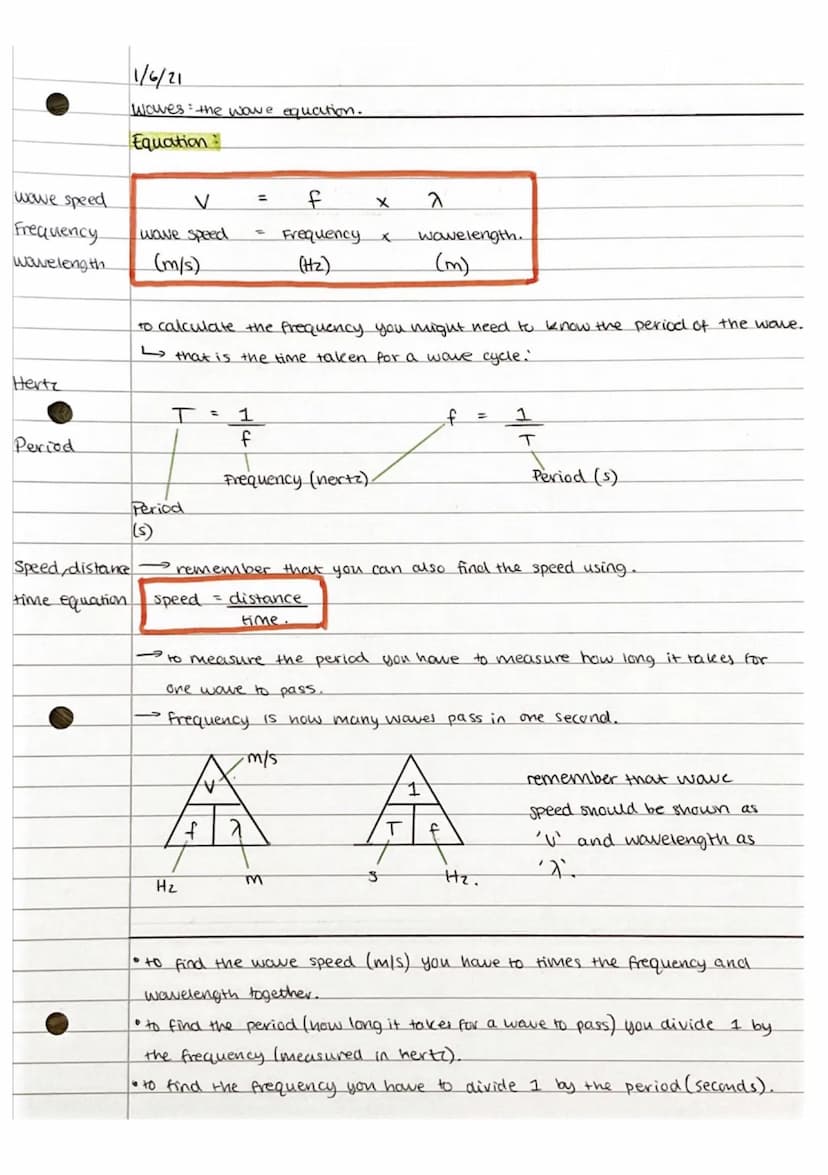 1/6/21
Waves: the wave equation.
Equation:
wave speed
V = f x λ
Frequency
wave speed = Frequency x wavelength.
wavelength
(m/s) (Hz) (m)
to calculate the frequency you might need to know the period of the wave.
↳ that is the time taken for a wave cycle.
Hertz
T = 1/f
f = 1/T
Period
Frequency (hertz)
Period (s)
Period
(s)
Speed, distance
time equation
→ remember that you can also find the speed using.
speed = distance
time.
→ to measure the period you have to measure how long it takes for
one wave to pass.
→ frequency is how many waves pass in one second.
m/s
V
f λ
Hz m
1
T f
s Hz.
remember that wave
speed should be shown as
'v' and wavelength as
'λ'.
• to find the wave speed (m/s) you have to times the frequency and
wavelength together.
• to find the period (how long it takes for a wave to pass) you divide 1 by
the frequency (measured in hertz).
• to find the frequency you have to divide 1 by the period (seconds).